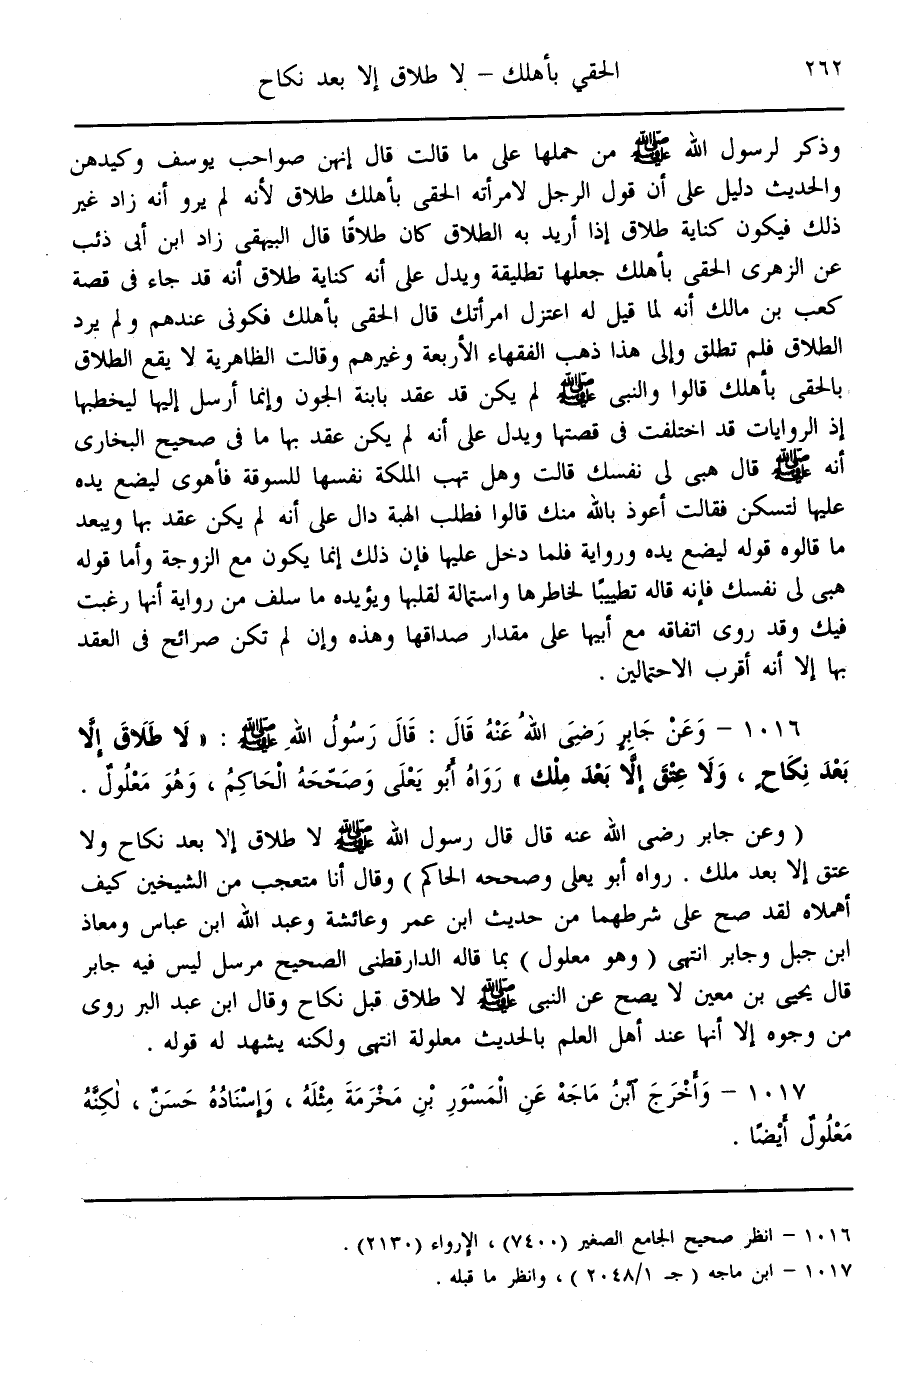 ٢٦٢
الحقي بأهلك – لا طلاق إلا بعد نكاح
وذكر لرسول الله ﷺ من حملها على ما قالت قال إنهن صواحب يوسف وكيدهن
والحديث دليل على أن قول الرجل لامرأته الحقى بأهلك طلاق لأنه لم يرو أنه زاد غير
ذلك فيكون كناية طلاق إذا أريد به الطلاق كان طلاقًا قال البيهقى زاد ابن أبى ذئب
عن الزهرى الحقى بأهلك جعلها تطليقة ويدل على أنه كناية طلاق أنه قد جاء فى قصة
كعب بن مالك أنه لما قيل له اعتزل امرأتك قال الحقى بأهلك فكونى عندهم ولم يرد
الطلاق فلم تطلق وإلى هذا ذهب الفقهاء الأربعة وغيرهم وقالت الظاهرية لا يقع الطلاق
بالحقى بأهلك قالوا والنبى ﷺ لم يكن قد عقد بابنة الجون وإنما أرسل إليها ليخطبها
إذ الروايات قد اختلفت فى قصتها ويدل على أنه لم يكن عقد بها ما فى صحيح البخارى
أنه ﷺ قال هبى لى نفسك قالت وهل تهب الملكة نفسها للسوقة فأهوى ليضع يده
عليها لتسكن فقالت أعوذ بالله منك قالوا فطلب الهبة دال على أنه لم يكن عقد بها ويبعد
ما قالوه قوله ليضع يده ورواية فلما دخل عليها فإن ذلك إنما يكون مع الزوجة وأما قوله
هبى لى نفسك فإنه قاله تطييبًا لخاطرها واستمالة لقلبها ويؤيده ما سلف من رواية أنها رغبت
فيك وقد روى اتفاقه مع أبيها على مقدار صداقها وهذه وإن لم تكن صرائح فى العقد
بها إلا أنه أقرب الاحتمالين .
١٠١٦ – وَعَنْ جَابِرٍ رَضِىَ اللهُ عَنْهُ قَالَ : قَالَ رَسُولُ اللهِ ﷺ : « لَا طَلَاقَ إِلَّا
بَعْدَ نِكَاحٍ ، وَلَا عِتْقَ إِلَّا بَعْدَ مِلْك » رَوَاهُ أَبُو يَعْلَى وَصَحَّحَهُ الْحَاكِمُ ، وَهُوَ مَعْلُولٌ .
( وعن جابر رضى الله عنه قال قال رسول الله ﷺ لا طلاق إلا بعد نكاح ولا
عتق إلا بعد ملك . رواه أبو يعلى وصححه الحاكم ) وقال أنا متعجب من الشيخين كيف
أهملاه لقد صح على شرطهما من حديث ابن عمر وعائشة وعبد الله ابن عباس ومعاذ
ابن جبل وجابر انتهى ( وهو معلول ) بما قاله الدارقطنى الصحيح مرسل ليس فيه جابر
قال يحيى بن معين لا يصح عن النبى ﷺ لا طلاق قبل نكاح وقال ابن عبد البر روى
من وجوه إلا أنها عند أهل العلم بالحديث معلولة انتهى ولكنه يشهد له قوله .
١٠١٧ – وَأَخْرَجَ ٱبْنُ مَاجَهْ عَنِ الْمَسْوَرِ بْنِ مَخْرَمَةَ مِثْلَهُ ، وَإِسْنَادُهُ حَسَنٌ ، لٰكِنَّهُ
مَعْلُولٌ أَيْضًا .
١٠١٦ – انظر صحيح الجامع الصغير (٧٤٠٠) ، الإرواء (٢١٣٠) .
١٠١٧ – ابن ماجه ( جـ ٢٠٤٨/١ ) ، وانظر ما قبله .